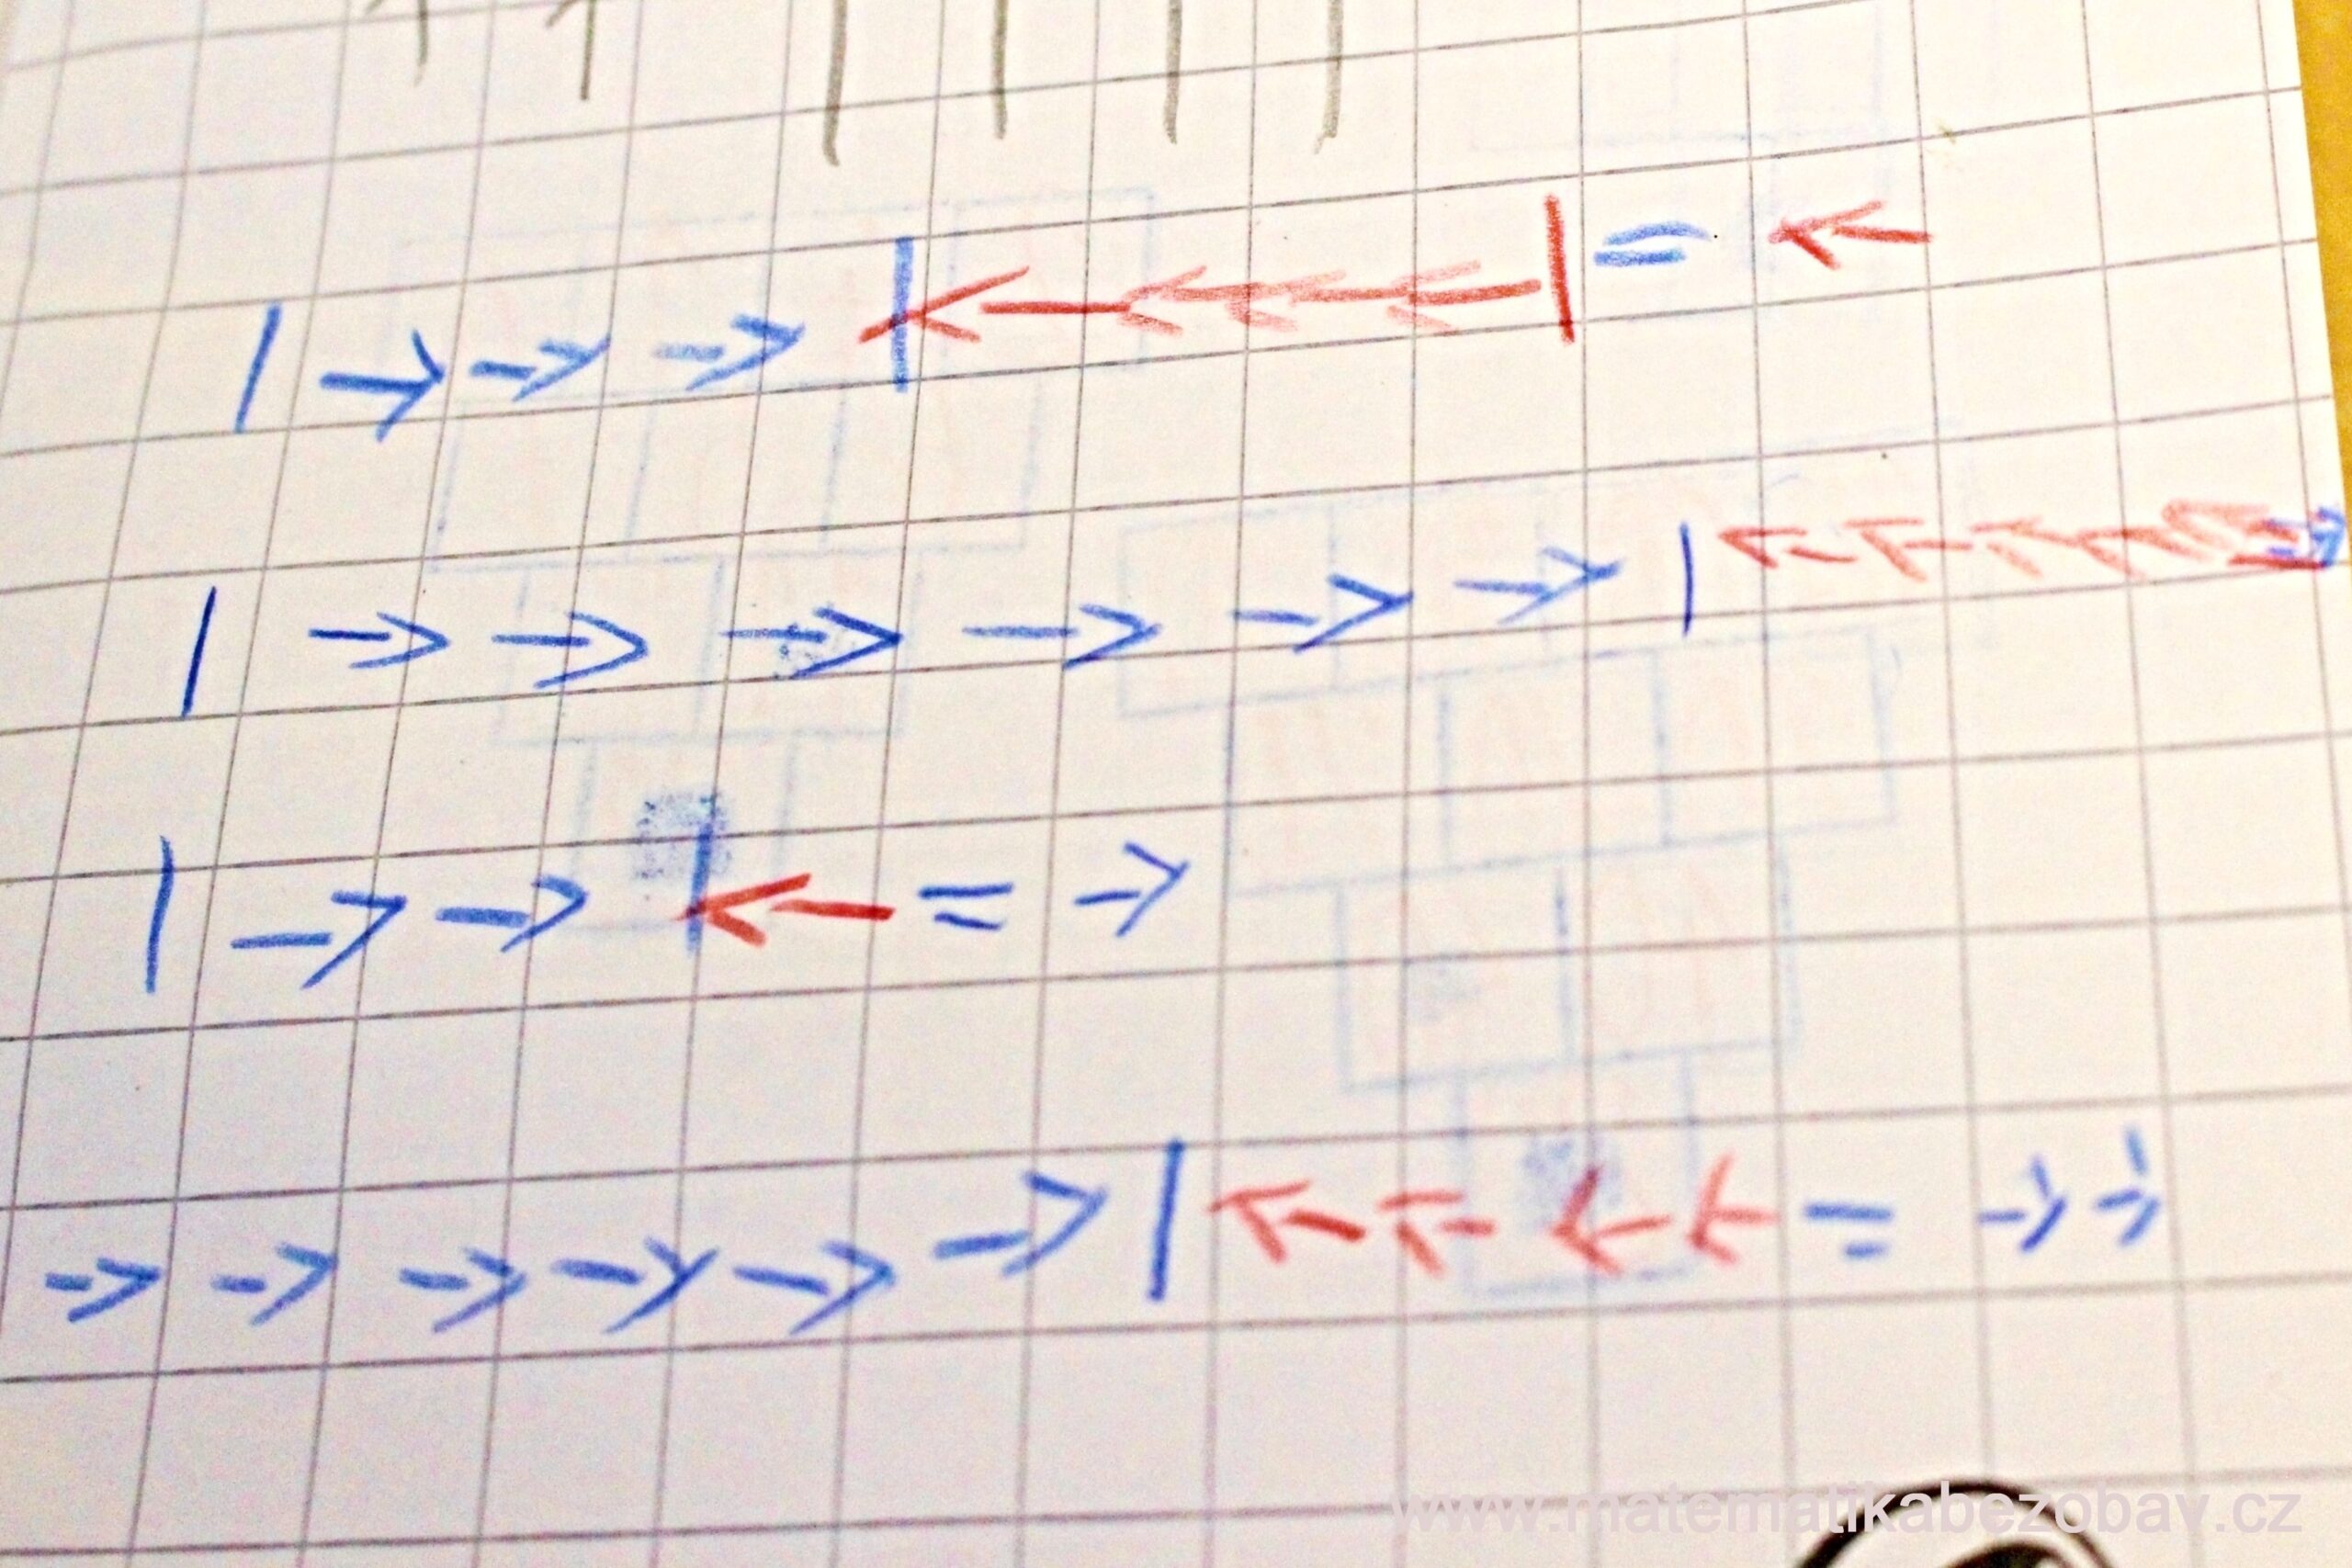 | → → → | ← ← ← ← | = ←
| → → → → → → |
| → → | ← = →
→ → → → → → | ← ← ← ← = → →
www.matematikabezobav.cz